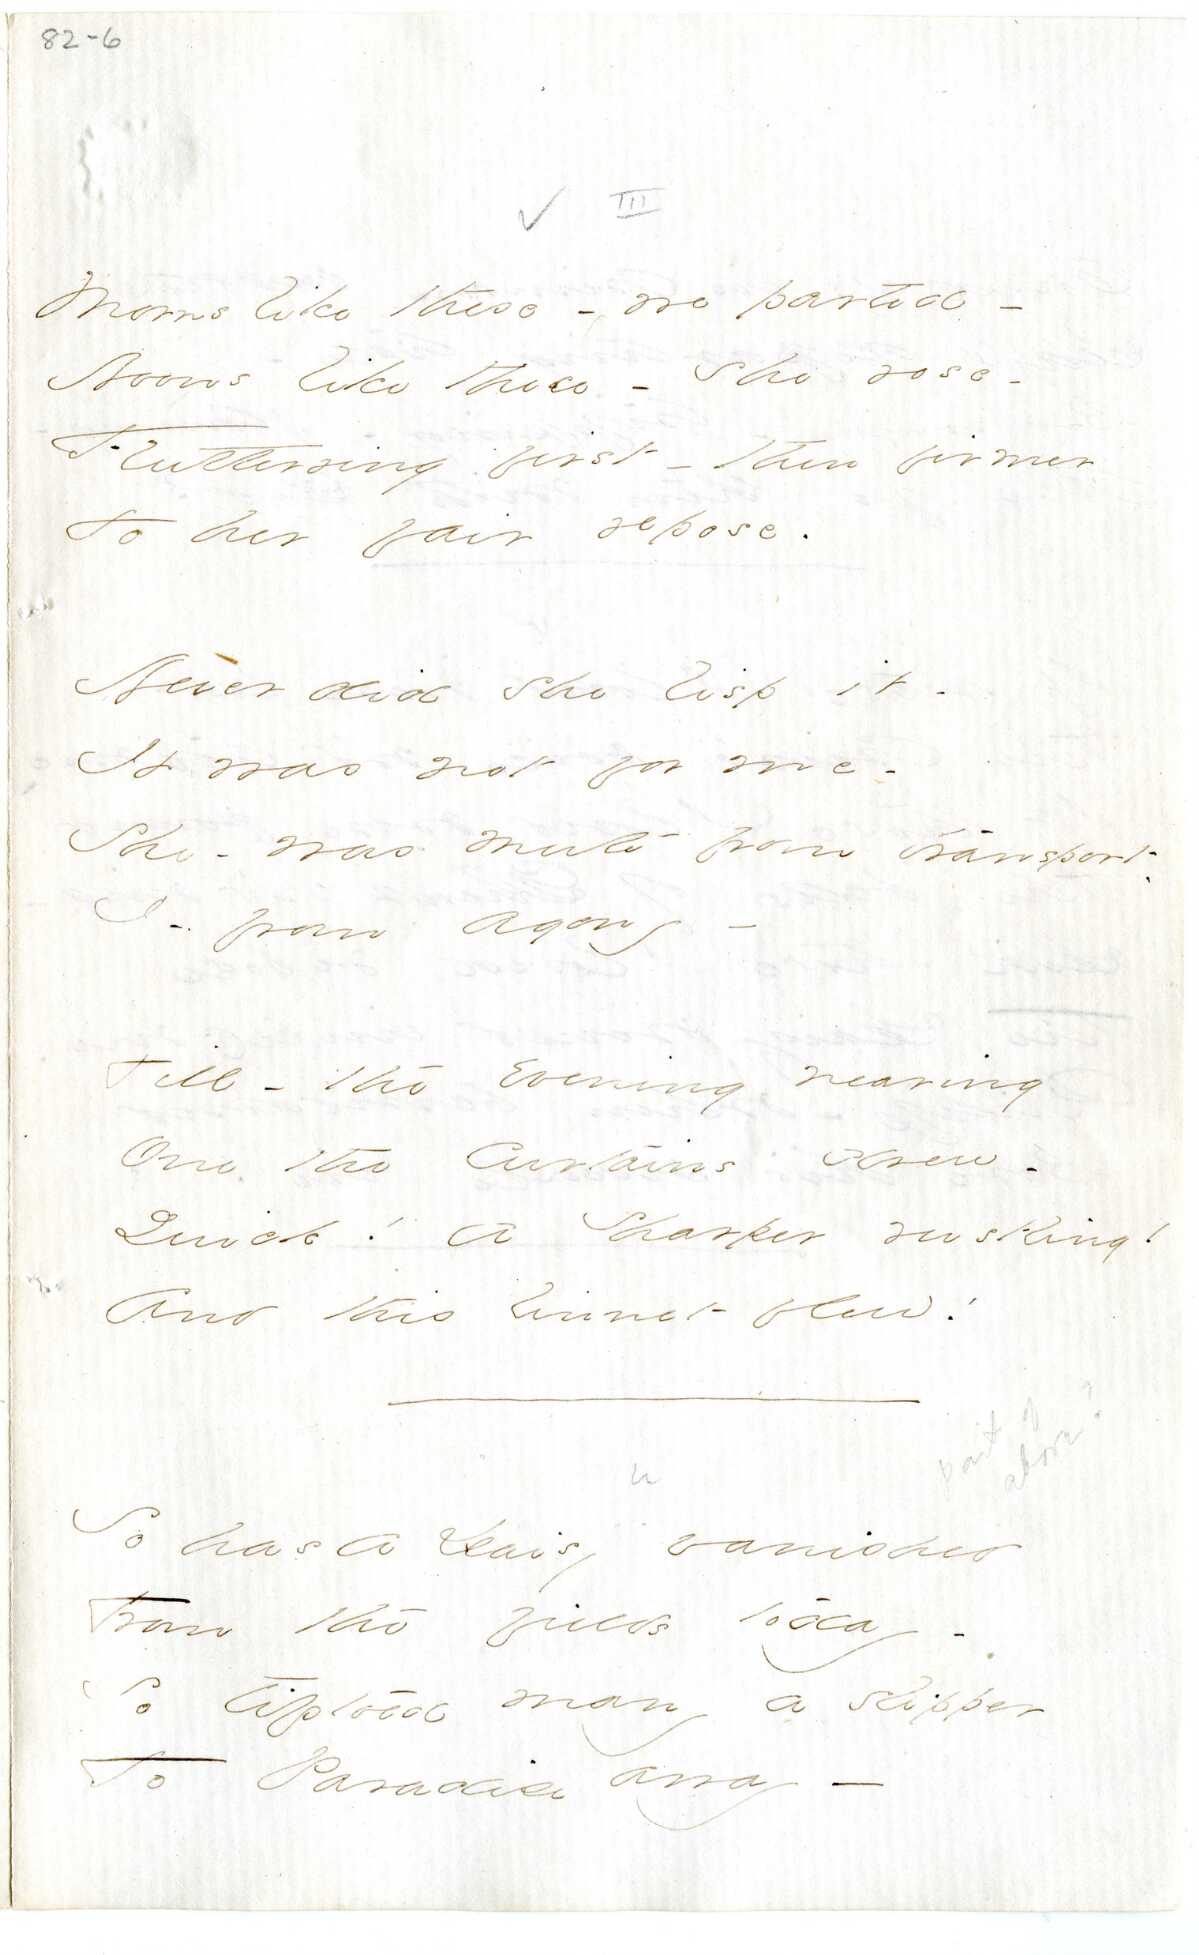 82-6
✓ III
Morns like these - we parted -
Noons like these - she rose -
Fluttering first - then firmer
To her fair repose.
Never did she lisp it -
It was not for me -
She - was mute from transport -
I - from agony -
Till - the evening nearing
One the curtains drew -
Quick! A Sharper rustling!
And this linnet flew!
part of
above?
So has a Daisy vanished
From the fields today -
So tiptoed many a slipper
To Paradise away -